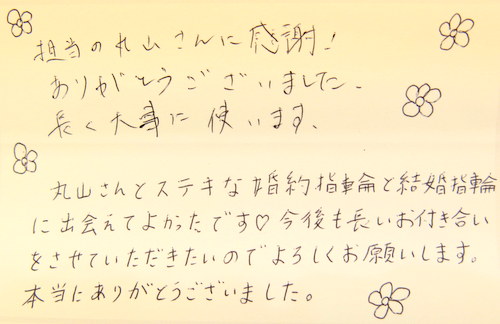 担当の丸山さんに感謝!
ありがとうございました。
長く大事に使います。
丸山さんとステキな婚約指輪と結婚指輪
に出会えてよかったです♡今後も長いお付き合い
をさせていただきたいのでよろしくお願いします。
本当にありがとうございました。